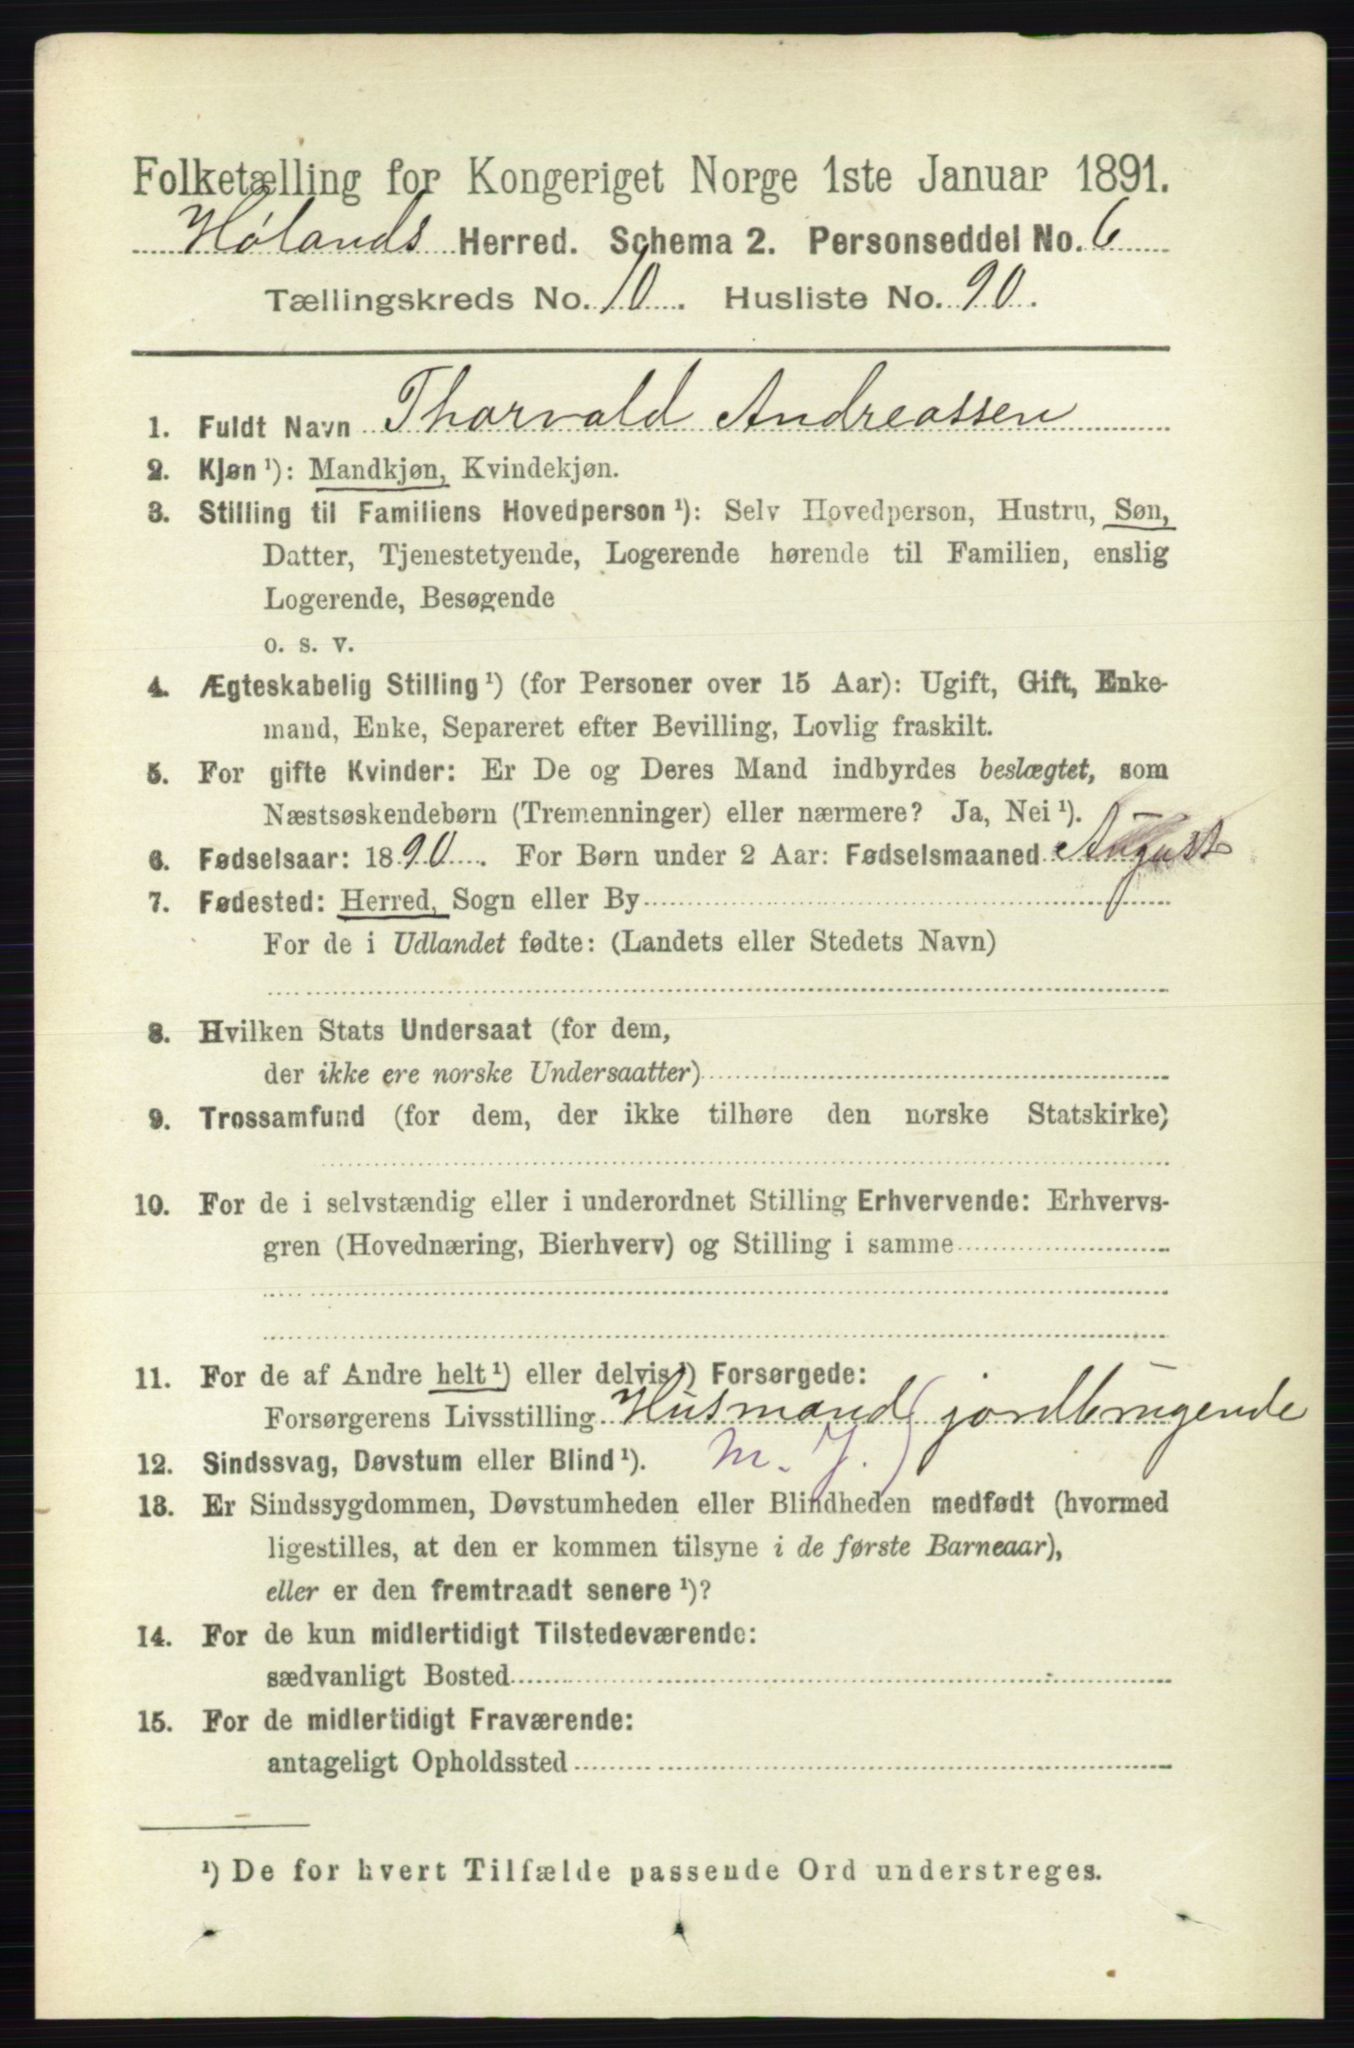 Folketælling for Kongeriget Norge 1ste Januar 1891.
Hølands Herred. Schema 2. Personseddel No. 6
Tællingskreds No. 10. Husliste No. 90.
1. Fuldt Navn Thorvald Andreassen
2. Kjøn ¹): Mandkjøn, Kvindekjøn.
3. Stilling til Familiens Hovedperson ¹): Selv Hovedperson, Hustru, Søn,
Datter, Tjenestetyende, Logerende hørende til Familien, enslig
Logerende, Besøgende
o. s. v.
4. Ægteskabelig Stilling ¹) (for Personer over 15 Aar): Ugift, Gift, Enke-
mand, Enke, Separeret efter Bevilling, Lovlig fraskilt.
5. For gifte Kvinder: Er De og Deres Mand indbyrdes beslægtet, som
Næstsøskendebørn (Tremenninger) eller nærmere? Ja, Nei ¹).
6. Fødselsaar: 1890. For Børn under 2 Aar: Fødselsmaaned August
7. Fødested: Herred, Sogn eller By
For de i Udlandet fødte: (Landets eller Stedets Navn)
8. Hvilken Stats Undersaat (for dem,
der ikke ere norske Undersaatter)
9. Trossamfund (for dem, der ikke tilhøre den norske Statskirke)
10. For de i selvstændig eller i underordnet Stilling Erhvervende: Erhvervs-
gren (Hovednæring, Bierhverv) og Stilling i samme
11. For de af Andre helt ¹) eller delvis ¹) Forsørgede:
Forsørgerens Livsstilling Husmand (jordbrugende
12. Sindssvag, Døvstum eller Blind ¹). m. J.)
13. Er Sindssygdommen, Døvstumheden eller Blindheden medfødt (hvormed
ligestilles, at den er kommen tilsyne i de første Barneaar),
eller er den fremtraadt senere ¹)?
14. For de kun midlertidigt Tilstedeværende:
sædvanligt Bosted
15. For de midlertidigt Fraværende:
antageligt Opholdssted
¹) De for hvert Tilfælde passende Ord understreges.